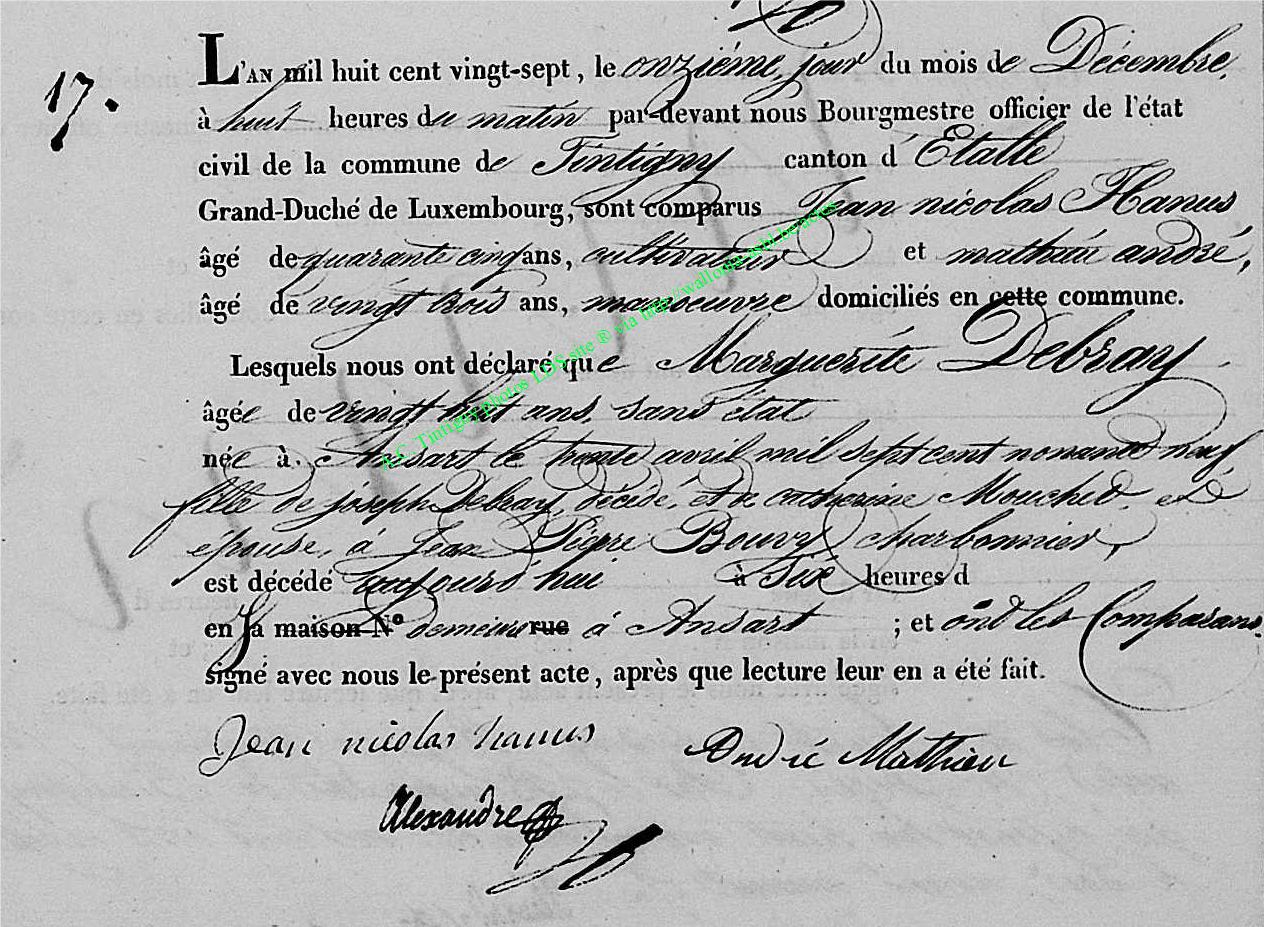 17.
L'AN mil huit cent vingt-sept, le onziéme jour du mois de Décembre,
à huit heures du matin par-devant nous Bourgmestre officier de l'état
civil de la commune de Tintigny canton d'Etalle
Grand-Duché de Luxembourg, sont comparus Jean nicolas Hanus
âgé de quarante cinq ans, cultivateur et mathieu andré,
âgé de vingt trois ans, manoeuvre domiciliés en cette commune.
Lesquels nous ont déclaré que Marguerite Debray
âgée de vingt huit ans, sans état
née à Ansart le trente avril mil sept cent nonante neuf
fille de joseph Debray, décédé, et de catherine Mouchet, et
épouse, à Jean Pierre Bouvy charbonnier,
est décédé aujourd'hui à six heures d
en sa maison N° demeure rue à Ansart ; et ont les Comparans
signé avec nous le présent acte, après que lecture leur en a été fait.
Jean nicolas hanus
André Mathieu
Alexandre
A.C. Tintigny photos LDS site ® via http://wallonia-asbl.be/actes